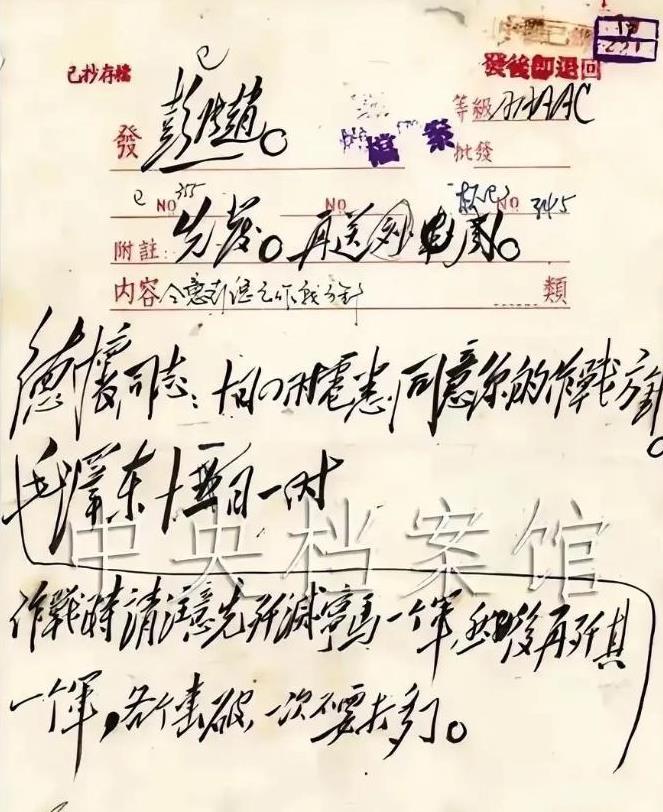 已抄存檔
發後即退回
發 彭張趙。
檔案
等級 AAAAC
批發
NO 355
NO
NO
附註：先發。再送劉 朱 周。
内容 同意彭德懷作戰方針
類
德懷同志：十四日八時電悉，同意你的作戰方針。
毛澤東 十五日一時
作戰時請注意先殲滅寧馬一個軍，然後再殲其
一個軍，各個擊破，一次不要打多了。
中央档案馆